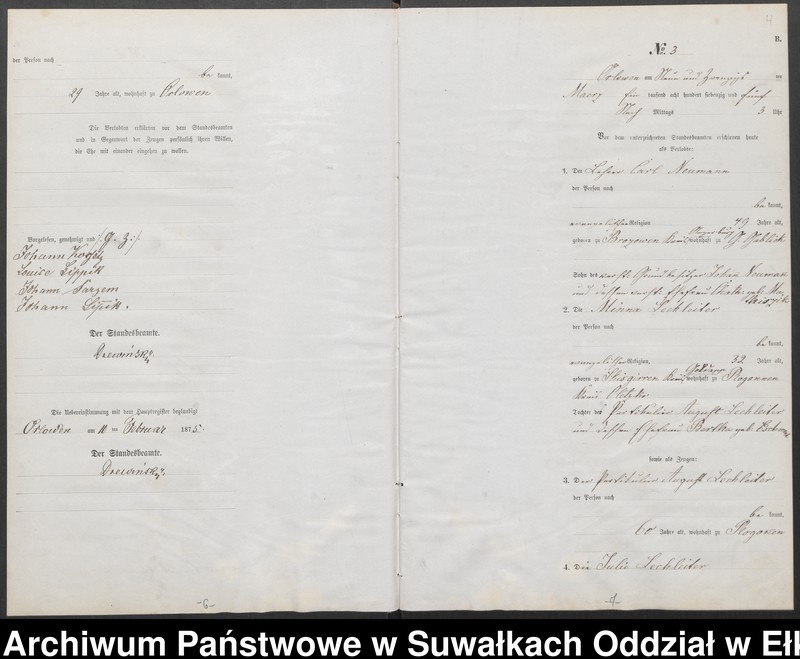 der Person nach
be kannt,
29 Jahre alt, wohnhaft zu Orlowen
Die Verlobten erklärten vor dem Standesbeamten
und in Gegenwart der Zeugen persönlich ihren Willen,
die Ehe mit einander eingehen zu wollen.
Vorgelesen, genehmigt und
Johann
Louise Lippik
Johann Sarzem
Johann Lippik.
Der Standesbeamte.
Drewińsky.
Die Uebereinstimmung mit dem Hauptregister beglaubigt
Orlowen am 11 ten Februar 1875.
Der Standesbeamte.
Drewińsky.
-6-
14
B.
No. 3
Orlowen am Neun und Zwanzigs ten
Maerz Ein tausend acht hundert siebenzig und fünf
Nach Mittags 3 Uhr
Vor dem unterzeichneten Standesbeamten erschienen heute
als Verlobte:
1. Der Lehrer Carl Neumann
der Person nach
be kannt,
evangelischer Religion 49 Jahre alt,
geboren zu Brozowen Kreis wohnhaft zu Gr. Gablick
Sohn des verst. Grundbesitzer Johan Neuman
und dessen verst. Ehefrau
2. Die Minna Lechleiter
der Person nach
be kannt,
evangelischer Religion, 32 Jahre alt,
geboren zu Kreis Goldapp wohnhaft zu Rogonnen
Kreis Oletzko
Tochter des Partikulier August Lechleiter
und dessen Ehefrau Bertha geb.
sowie als Zeugen:
3. Der Partikulier August Lechleiter
der Person nach
be kannt,
60 Jahre alt, wohnhaft zu Rogonen
4. Die Julie Lechleiter
Archiwum Państwowe w Suwałkach Oddział w Ełk